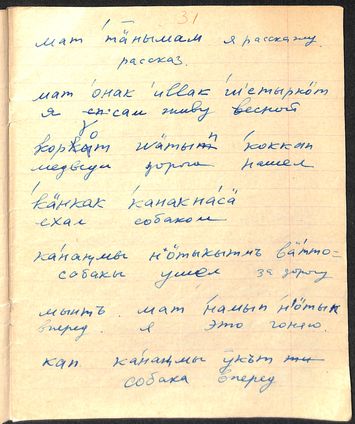 31
мат та̄нымам я расскажу
рассказ.
мат о́нак и́ввак и́естырко́т
я живу весной
шӓтып ко́ккап
медведи дорога нашел
ка́нкак ка́накпа́сӓ
ехал собаком
ка́наӊмы нӧтыкытнъ ва́тто=
собакы ушел за дорогу
мынтъ. мат на́мып нӧтык
вперед. я это гоняю.
кап ка́наӊмы ӯкът
собака вперед